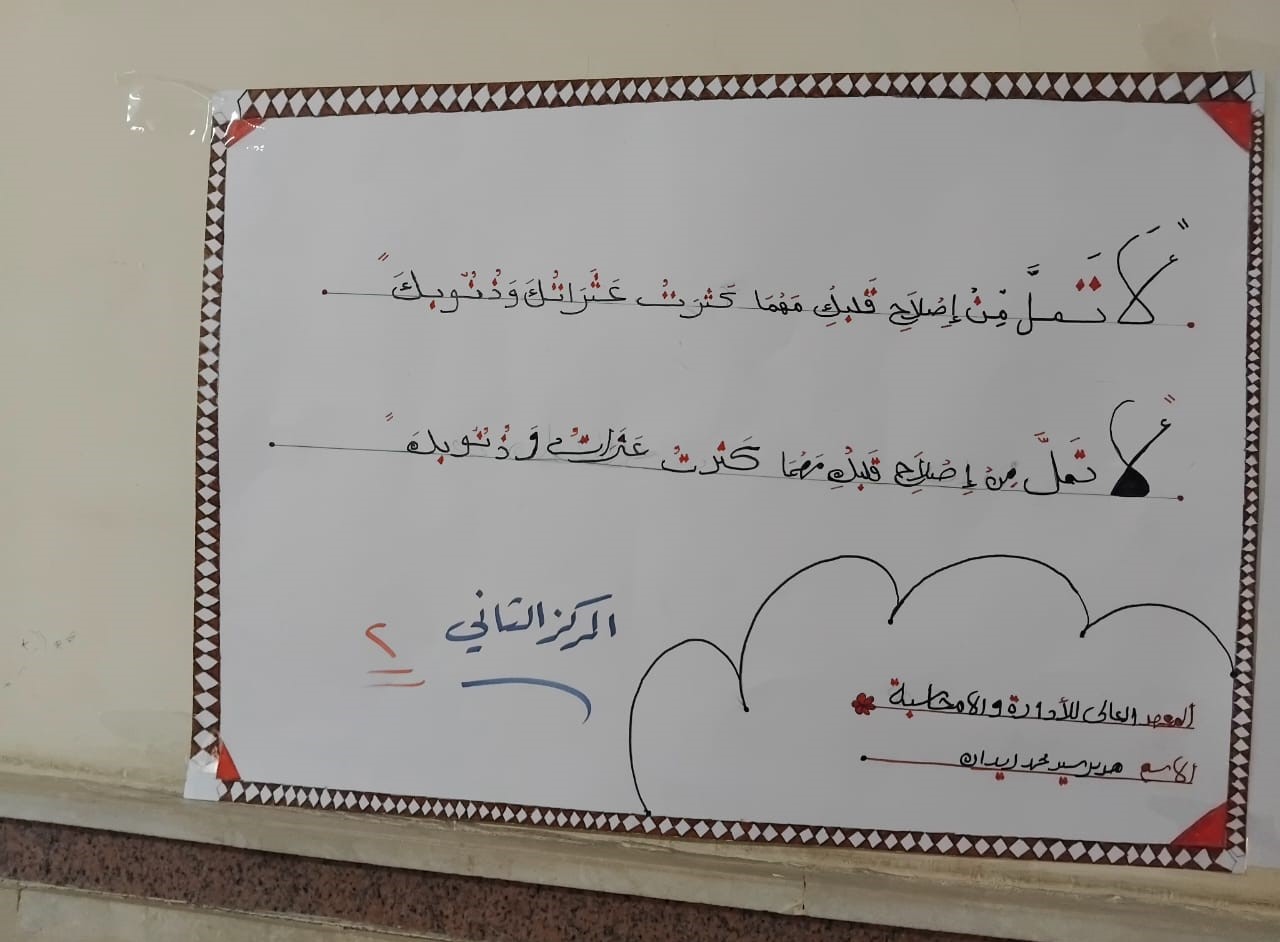 "لَا تَملَّ مِّنْ إِصْلَاحِ قَلبِكِ مَهْمَا كَثرَتْ عَثَرَاتُكَ وَذُنُوبكَ"
"لَا تَملَّ مِنْ إِصْلَاحِ قَلبْكِ مَهْمَا كَثرتْ عَثَراتُك وَ ذُنُوبكَ"
المركز الثاني ٢
المعهد العالى للأدارة والامحاسبة
الاسم هدير سيد محمد زيدان